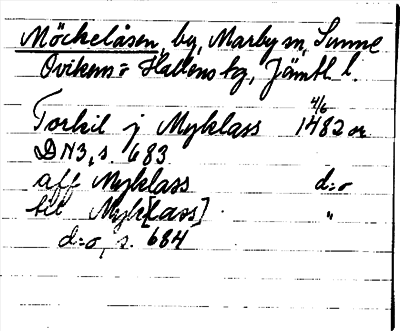 Möckelåsen, by, Marby sn, Sunne
Ovikens o Hallens tg, Jämtl. l.
4/6
Torkil j Myklass 1482 or
DN3, s. 683
aff Myklass d:o
till Mykl[ass] "
d:o, s. 684